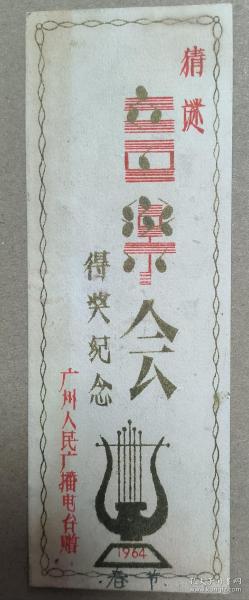 猜谜
音乐会
得奖纪念
广州人民广播电台赠
1964
春节